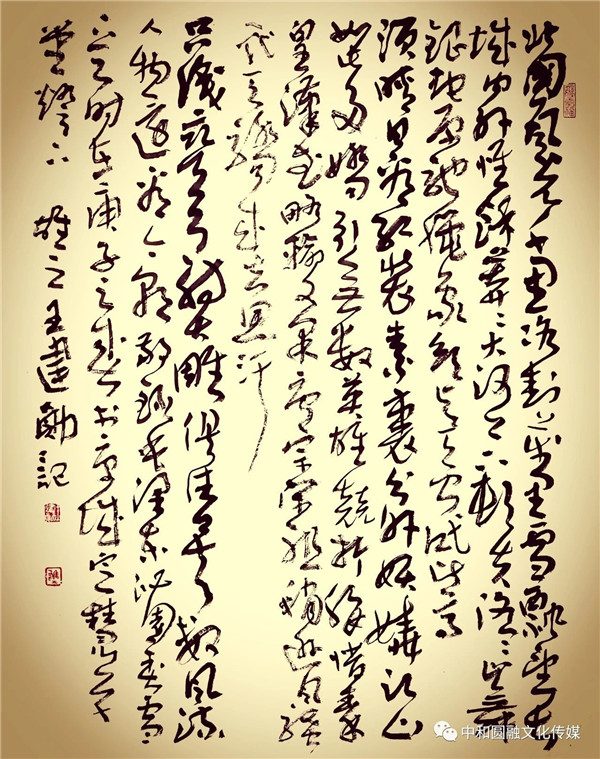 北國风光千里冰封万里雪飘望长
城内外惟馀莽々大河上下顿失滔々山舞
银蛇原驰蜡象欲与天公试比高
须晴日看红装素裹分外妖娆江山
如此多娇引无数英雄竞折腰惜秦
皇汉武略输文采唐宗宋祖稍逊风骚
一代天骄成吉思汗
只识弯弓射大雕俱往矣数风流
人物还看今朝 敬录毛泽东沁园春雪
时在庚子之秋于京城
堂灯下 雄之王建勋记
中和圆融文化传媒